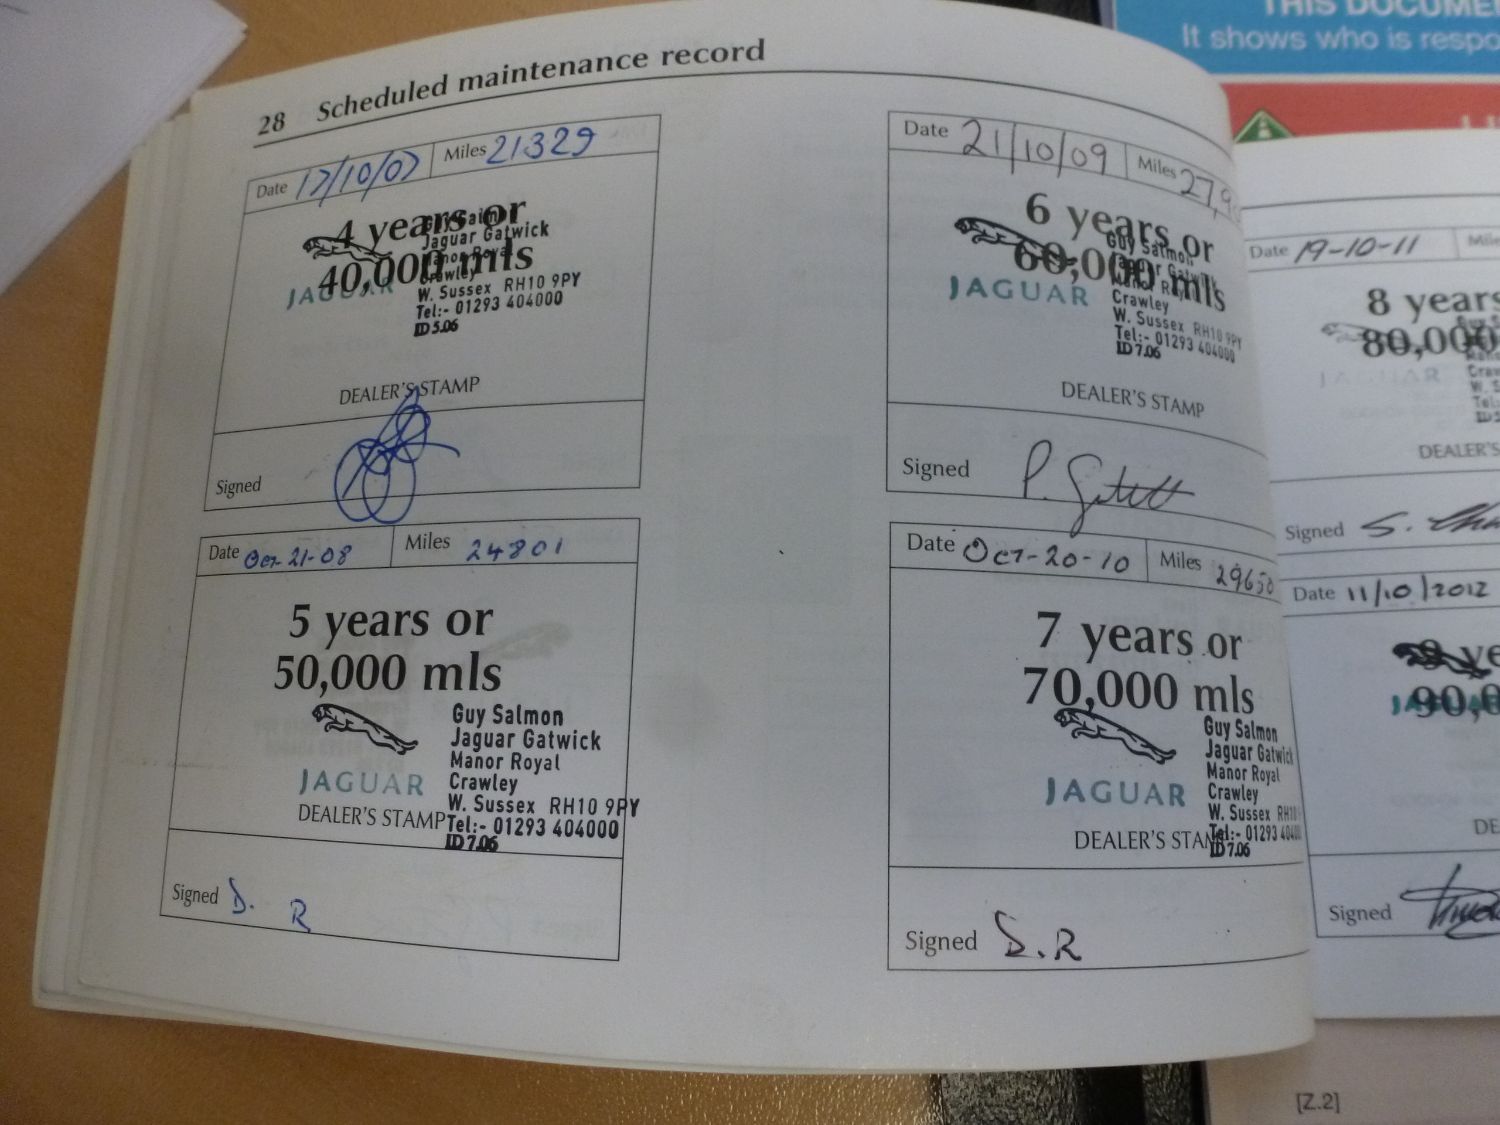 28 Scheduled maintenance record
Date 17/10/07 Miles 21329
4 years or
40,000 mls
Guy Salmon
Jaguar Gatwick
Manor Royal
Crawley
W. Sussex RH10 9PY
Tel:- 01293 404000
ID 5.06
JAGUAR
DEALER'S STAMP
Signed
Date Oct-21-08 Miles 24801
5 years or
50,000 mls
Guy Salmon
Jaguar Gatwick
Manor Royal
Crawley
W. Sussex RH10 9PY
Tel:- 01293 404000
ID 7.06
JAGUAR
DEALER'S STAMP
Signed D. R
Date 21/10/09 Miles 27,9
6 years or
60,000 mls
Guy Salmon
Jaguar Gatwick
Manor Royal
Crawley
W. Sussex RH10 9PY
Tel:- 01293 404000
ID 7.06
JAGUAR
DEALER'S STAMP
Signed P.
Date Oct-20-10 Miles 29650
7 years or
70,000 mls
Guy Salmon
Jaguar Gatwick
Manor Royal
Crawley
W. Sussex RH10
Tel:- 01293 404000
ID 7.06
JAGUAR
DEALER'S STAMP
Signed D.R
THIS DOCUME
It shows who is respo
Date 19-10-11 Mile
8 years
80,000
JAGUAR
DEALER'S
Signed S.
Date 11/10/2012
9 ye
90,0
JAGUAR
DE
Signed
[Z.2]